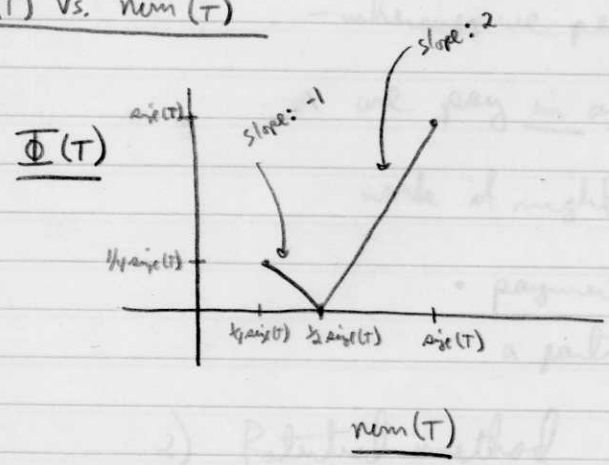 (T) vs. num(T)
slope: 2
size(T)
slope: -1
Φ(T)
1/4 size(T)
1/4 size(T) 1/2 size(T) size(T)
num(T)